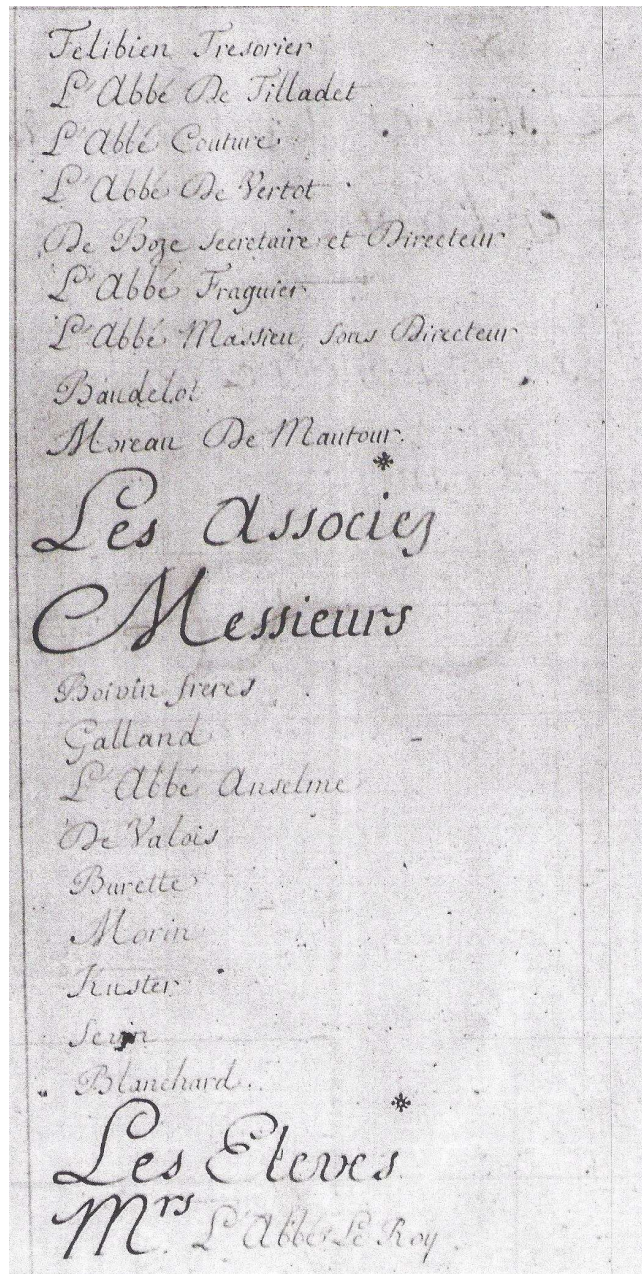 Felibien Tresorier
L'Abbé De Tilladet
L'Abbé Couture
L'Abbé De Vertot
De Boze secretaire et Directeur
L'Abbé Fraguier
L'Abbé Massieu, sous Directeur
Baudelot
Moreau De Mautour.
Les Associez
Messieurs
Boivin freres
Galland
L'Abbé Anselme
De Valois
Burette
Morin
Kuster
Sevin
Blanchard.
Les Eleves
Mrs. L'Abbé Le Roy.